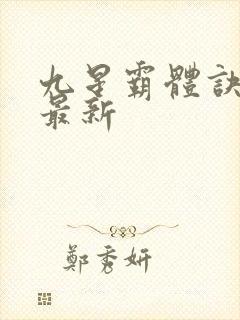 九星霸體訣
最新
鄭秀妍